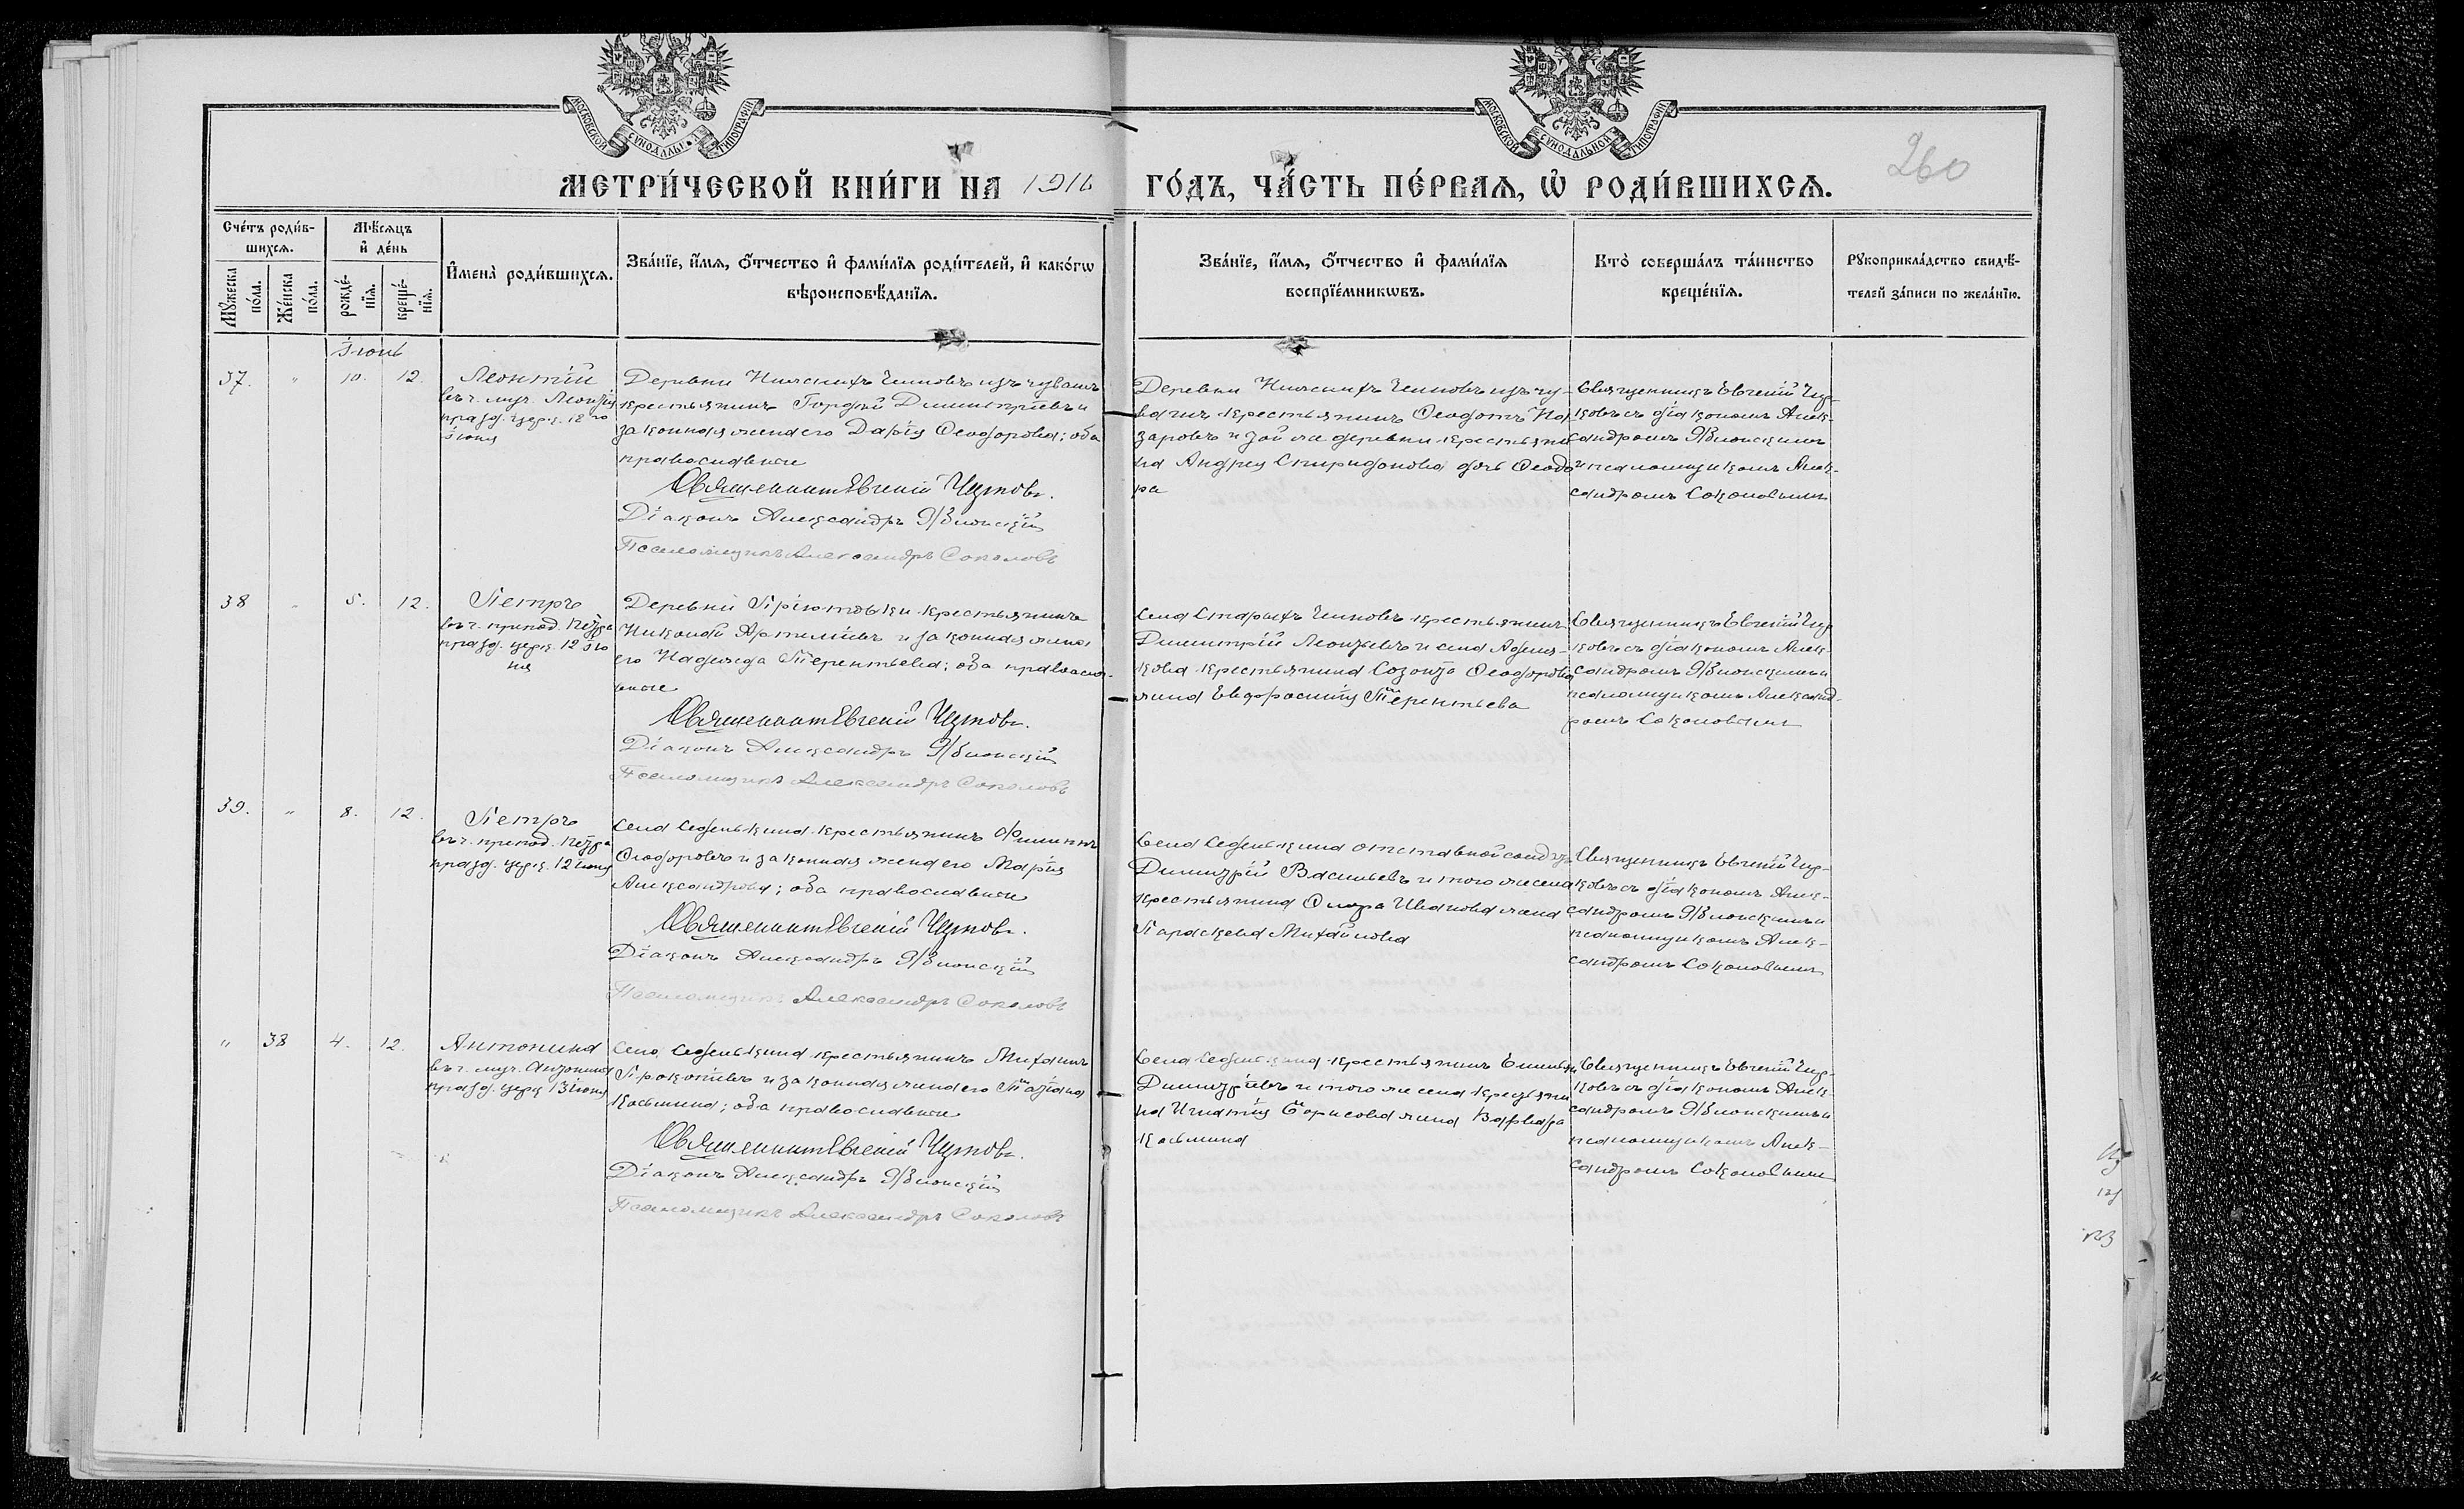 МОСКОВСКОЙ СУНОДАЛЬНОЙ ТИПОГРАФИИ
МОСКОВСКОЙ СУНОДАЛЬНОЙ ТИПОГРАФИИ
260
МЕТРИ́ЧЕСКОЙ КНИ́ГИ НА 1916 ГО́ДЪ, ЧА́СТЬ ПЕ́РВАЯ, Ѡ РОДИ́ВШИХСЯ.
Сче́тъ роди́в-
шихся.
Мѣ́сяцъ
и҆ де́нь
Мꙋ́жеска
по́ла.
Же́нска
по́ла.
рожде́-
нїя.
креще́-
нїя.
И҆мена̀ роди́вшихся.
Зва́нїе, и҆́мя, ѻ҆́тчество и҆ фами́лїя роди́телей, и҆ како́гѡ
вѣроисповѣ́данїя.
Зва́нїе, и҆́мя, ѻ҆́тчество и҆ фами́лїя
воспрїе́мникѡвъ.
Кто̀ соверша́лъ та́инство
креще́нїя.
Рꙋкоприкла́дство свидѣ́-
телей за́писи по жела́нїю.
Іюнь
37. " 10. 12.
Леонтій
въ ч. муч. Леонтія
празд. церк. 18го
Іюня
Деревни Нижнихъ Чиповъ изъ чувашъ
крестьянинъ Гордѣй Димитріевъ и
законная жена его Дарія Ѳеодорова; оба
православные
Священникъ Евгеній Чирковъ.
Діаконъ Александръ Яблонскій
Псаломщикъ Александръ Соколовъ
Деревни Нижнихъ Чиповъ изъ чу-
вашъ крестьянинъ Ѳеодотъ На-
заровъ и той же деревни крестьяни
на Андрея Спиридонова дочь Ѳеодо
ра
Священникъ Евгеній Чир-
ковъ съ діакономъ Алек-
сандромъ Яблонскимъ
и псаломщикомъ Алек-
сандромъ Соколовымъ
38 " 5. 12.
Петръ
въ ч. препод. Петра
празд. церк. 12 Ію
ня
Деревни Пріютовки крестьянинъ
Николай Артеміевъ и законная жена
его Надежда Терентьева; оба правосла-
вные
Священникъ Евгеній Чирковъ.
Діаконъ Александръ Яблонскій
Псаломщикъ Александръ Соколовъ
Села Старыхъ Чиповъ крестьянинъ
Димитрій Леонтьевъ и села
крестьянина Созонта Ѳеодорова
жена Евфросинія Терентьева
Священникъ Евгеній Чир
ковъ съ діакономъ Алек-
сандромъ Яблонскимъ и
псаломщикомъ Александ-
ромъ Соколовымъ
39. " 8. 12.
Петръ
въ ч. препод. Петра
празд. церк. 12 Іюня
Села Седелькина крестьянинъ Филиппъ
Ѳеодоровъ и законная жена его Марія
Александрова; оба православные
Священникъ Евгеній Чирковъ.
Діаконъ Александръ Яблонскій
Псаломщикъ Александръ Соколовъ
Села Седелькина отставной солдатъ
Димитрій Васильевъ и того же села
крестьянина Ивановъ жена
Параскева Михайлова
Священникъ Евгеній Чир-
ковъ съ діакономъ Алек-
сандромъ Яблонскимъ и
псаломщикомъ Алек-
сандромъ Соколовымъ
" 38 4. 12.
Антонина
въ ч. муч. Антонины
празд. церк. 13 Іюня
Села Седелькина крестьянинъ Михаилъ
Прокопіевъ и законная жена его Татіана
Косьмина; оба православные
Священникъ Евгеній Чирковъ.
Діаконъ Александръ Яблонскій
Псаломщикъ Александръ Соколовъ
Села Седелькина крестьянинъ
Димитріевъ и того же села крестьяни
на Игнатія Борисова жена Варвара
Косьмина
Священникъ Евгеній Чир-
ковъ съ діакономъ Алек
сандромъ Яблонскимъ и
псаломщикомъ Алек-
сандромъ Соколовымъ